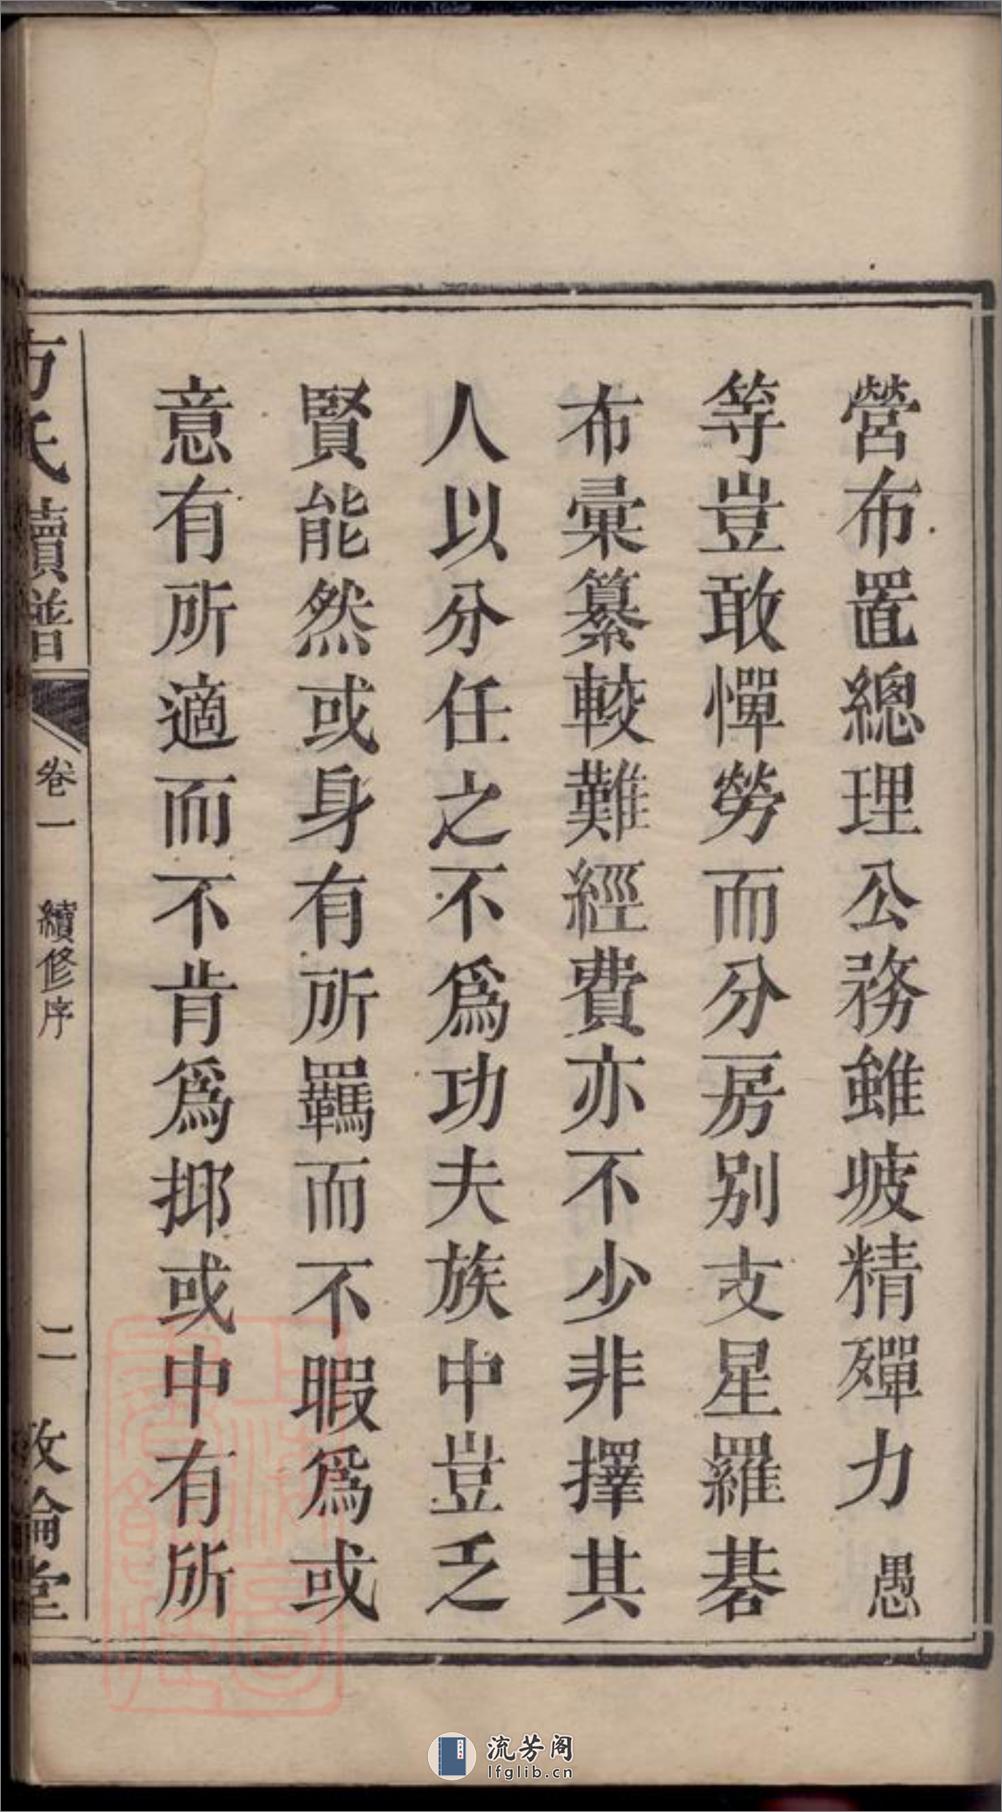 營布置總理公務雖疲精殫力愚
等豈敢憚勞而分房別支星羅碁
布彙纂較難經費亦不少非擇其
人以分任之不爲功夫族中豈乏
賢能然或身有所羈而不暇爲或
意有所適而不肯爲抑或中有所
方氏續譜
卷一
續修序
二
敦倫堂
流芳阁
lfglib.cn